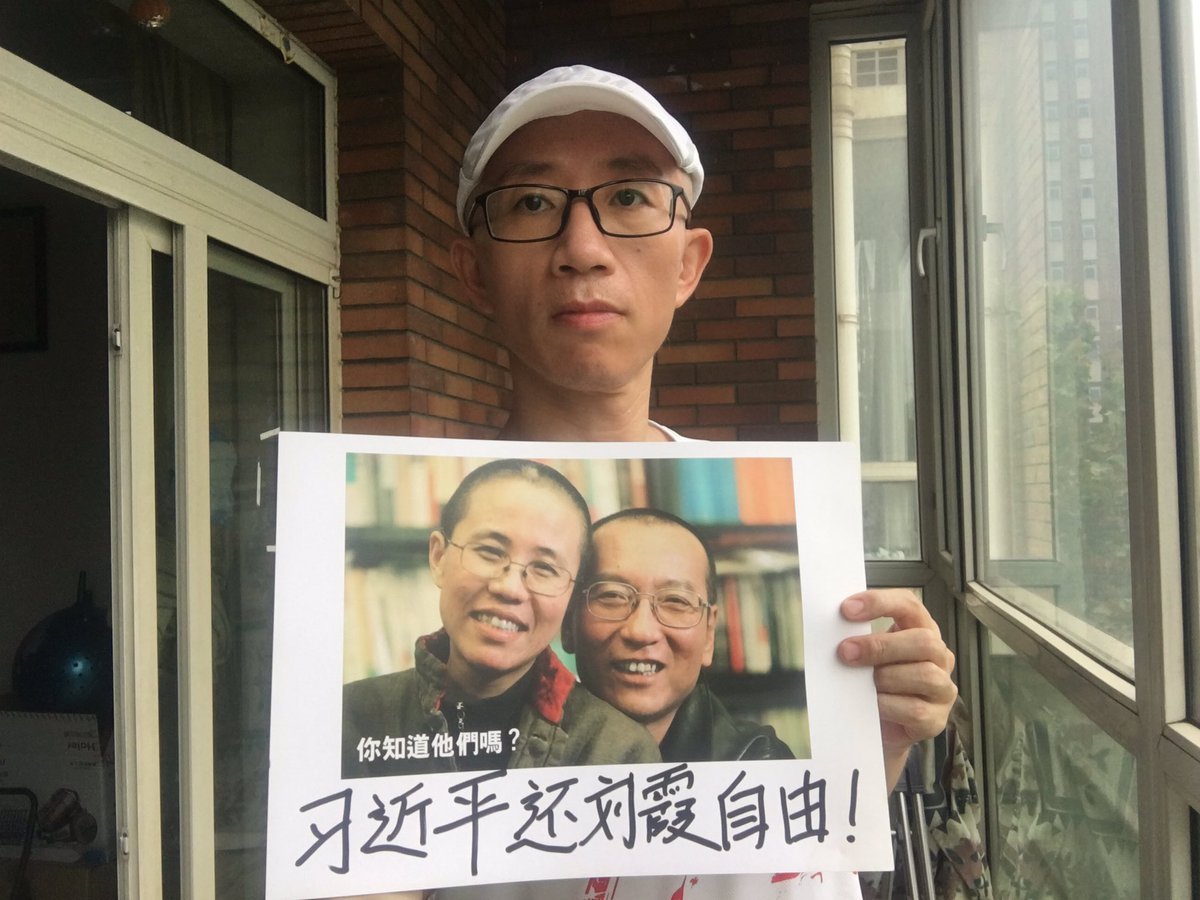 你知道他們嗎？
习近平还刘霞自由！
Haier